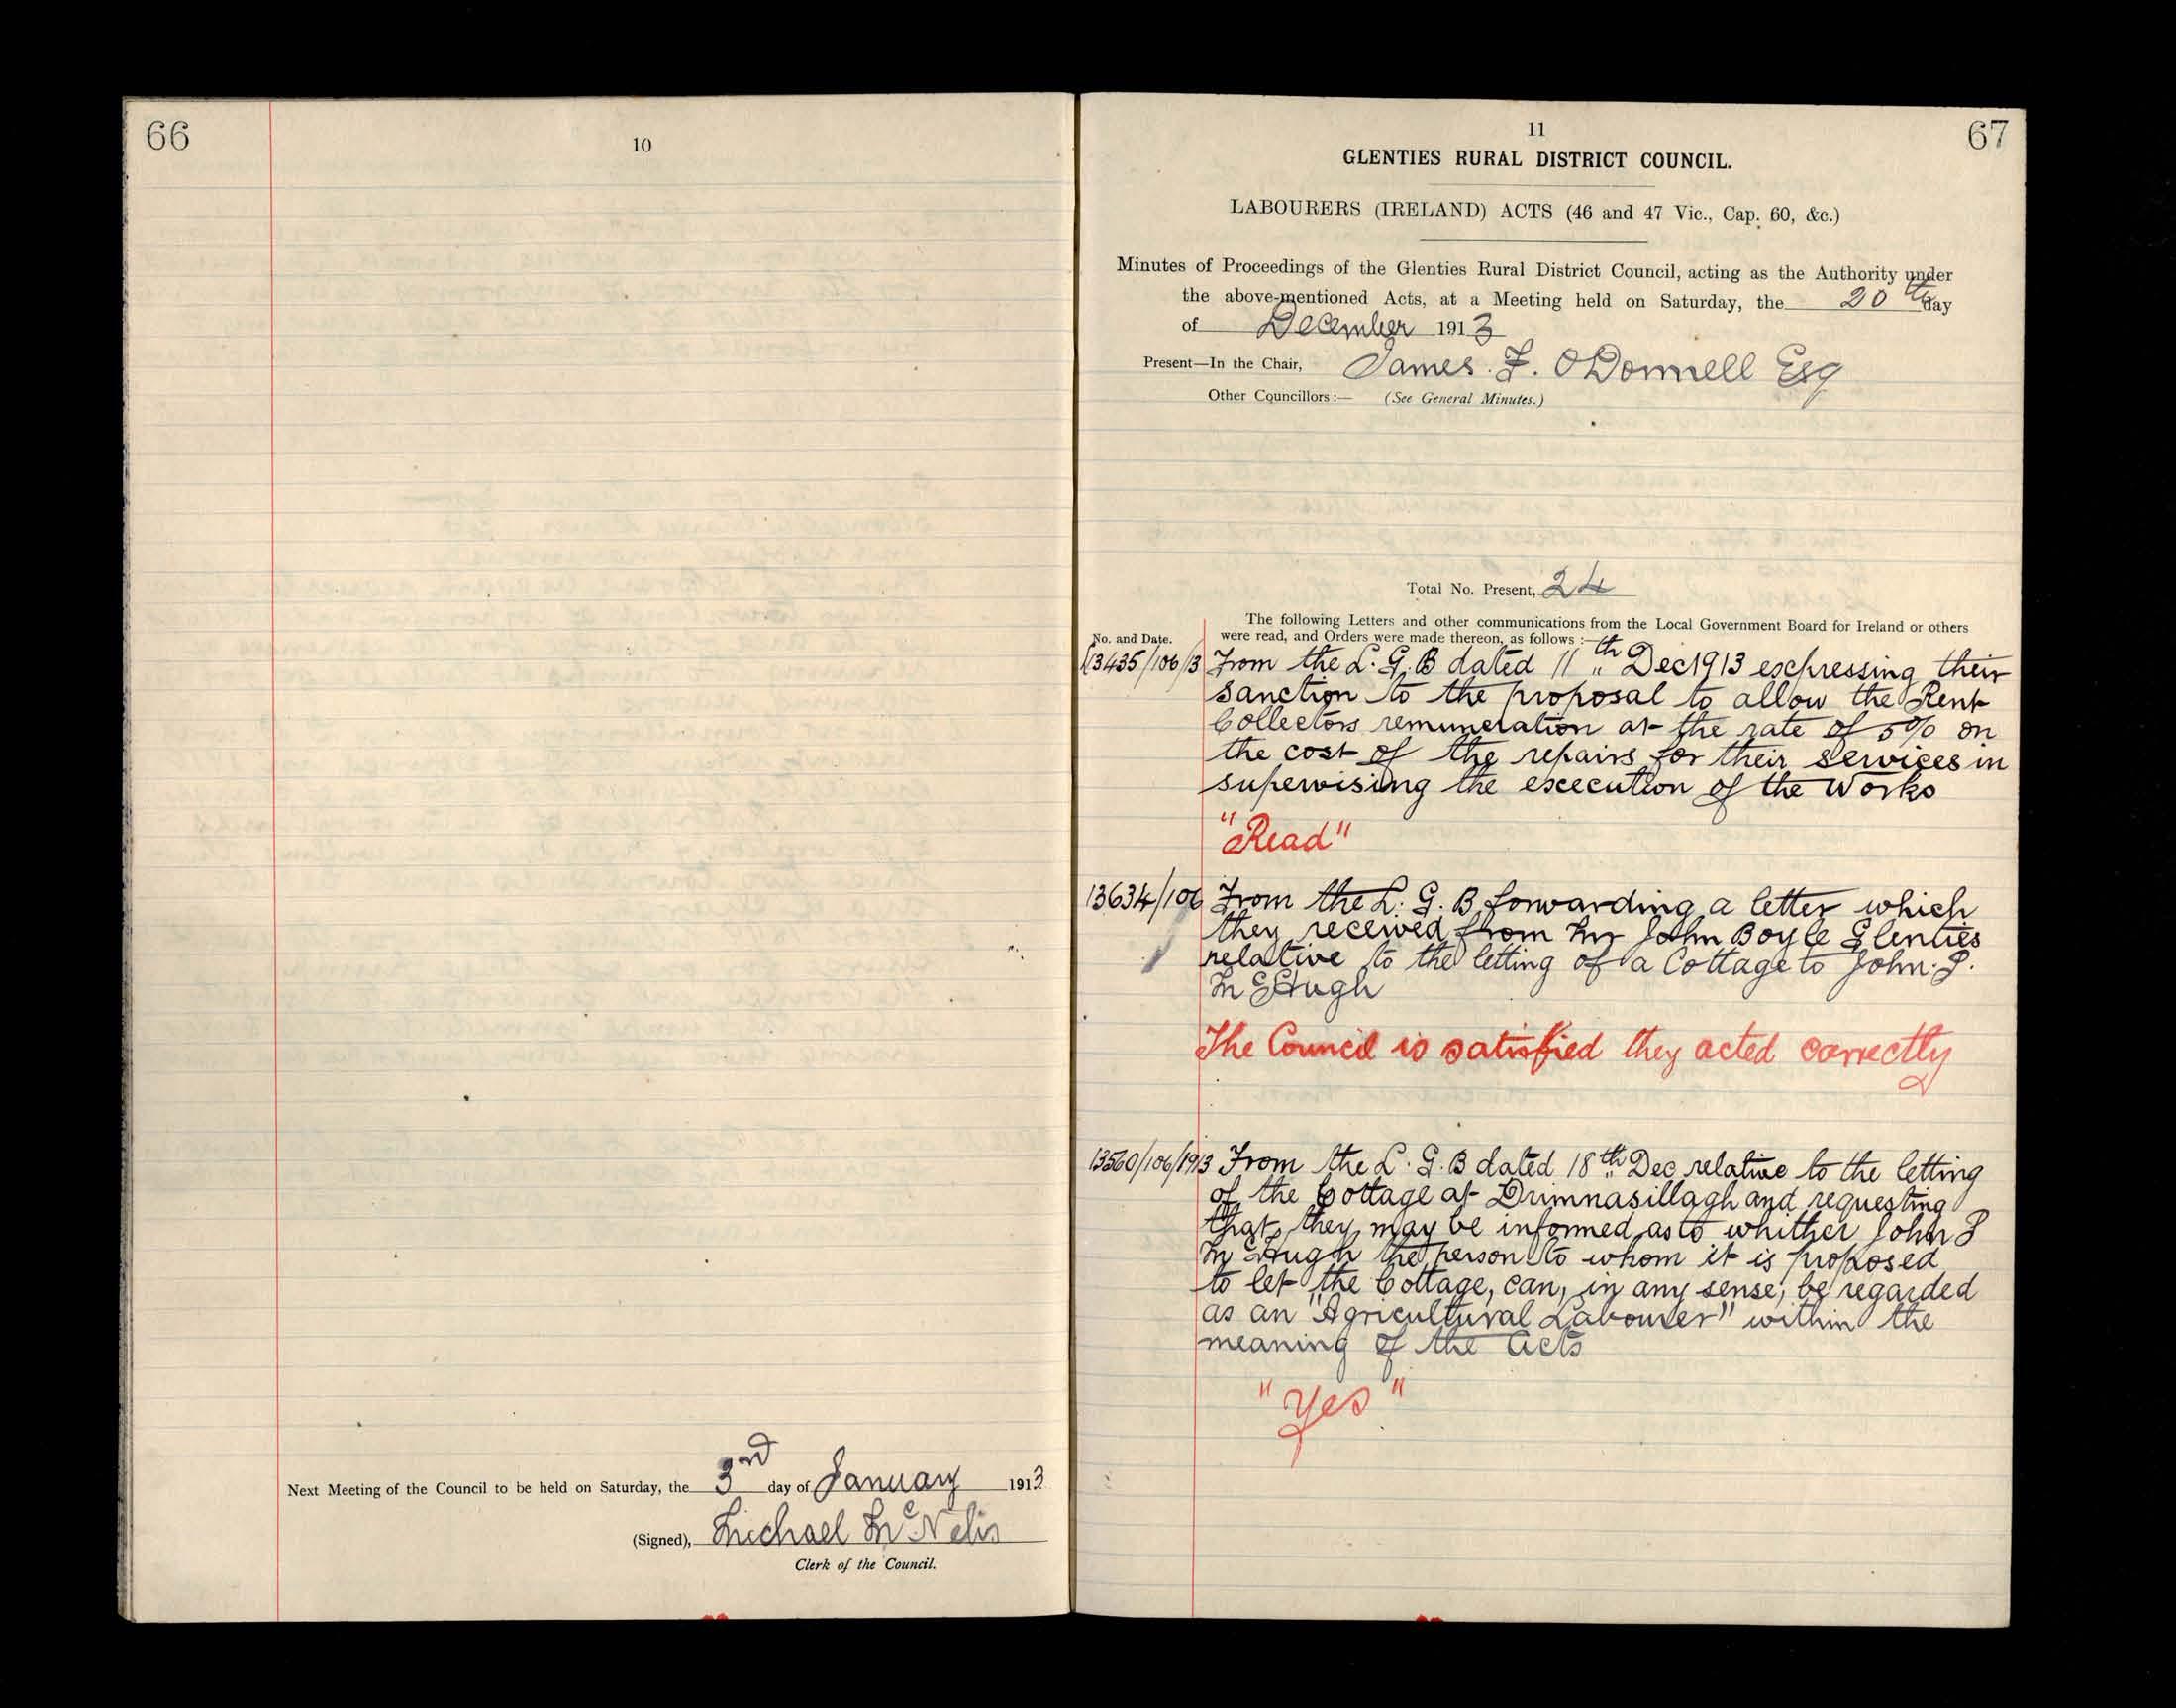 66
10
Next Meeting of the Council to be held on Saturday, the 3rd day of January 1913
(Signed), Michael McNelis
Clerk of the Council.
67
11
GLENTIES RURAL DISTRICT COUNCIL.
LABOURERS (IRELAND) ACTS (46 and 47 Vic., Cap. 60, &c.)
Minutes of Proceedings of the Glenties Rural District Council, acting as the Authority under
the above-mentioned Acts, at a Meeting held on Saturday, the 20th day
of December 1913
Present—In the Chair, James. F. O'Donnell Esq
Other Councillors :— (See General Minutes.)
Total No. Present, 24
The following Letters and other communications from the Local Government Board for Ireland or others
No. and Date. were read, and Orders were made thereon, as follows :—
13435/106/3 From the L. G. B dated 11th Dec 1913 expressing their
sanction to the proposal to allow the Rent
Collectors remuneration at the rate of 5% on
the cost of the repairs for their services in
supervising the execution of the Works
"Read"
13634/106 From the L. G. B forwarding a letter which
they received from Mr John Boyle Glenties
relative to the letting of a Cottage to John. P.
McHugh
The Council is satisfied they acted correctly
13560/106/1913 From the L. G. B dated 18th Dec relative to the letting
of the Cottage at Drimnasillagh and requesting
that they may be informed as to whither John P
McHugh the person to whom it is proposed
to let the Cottage, can, in any sense, be regarded
as an "Agricultural Labourer" within the
meaning of the Acts
"Yes"